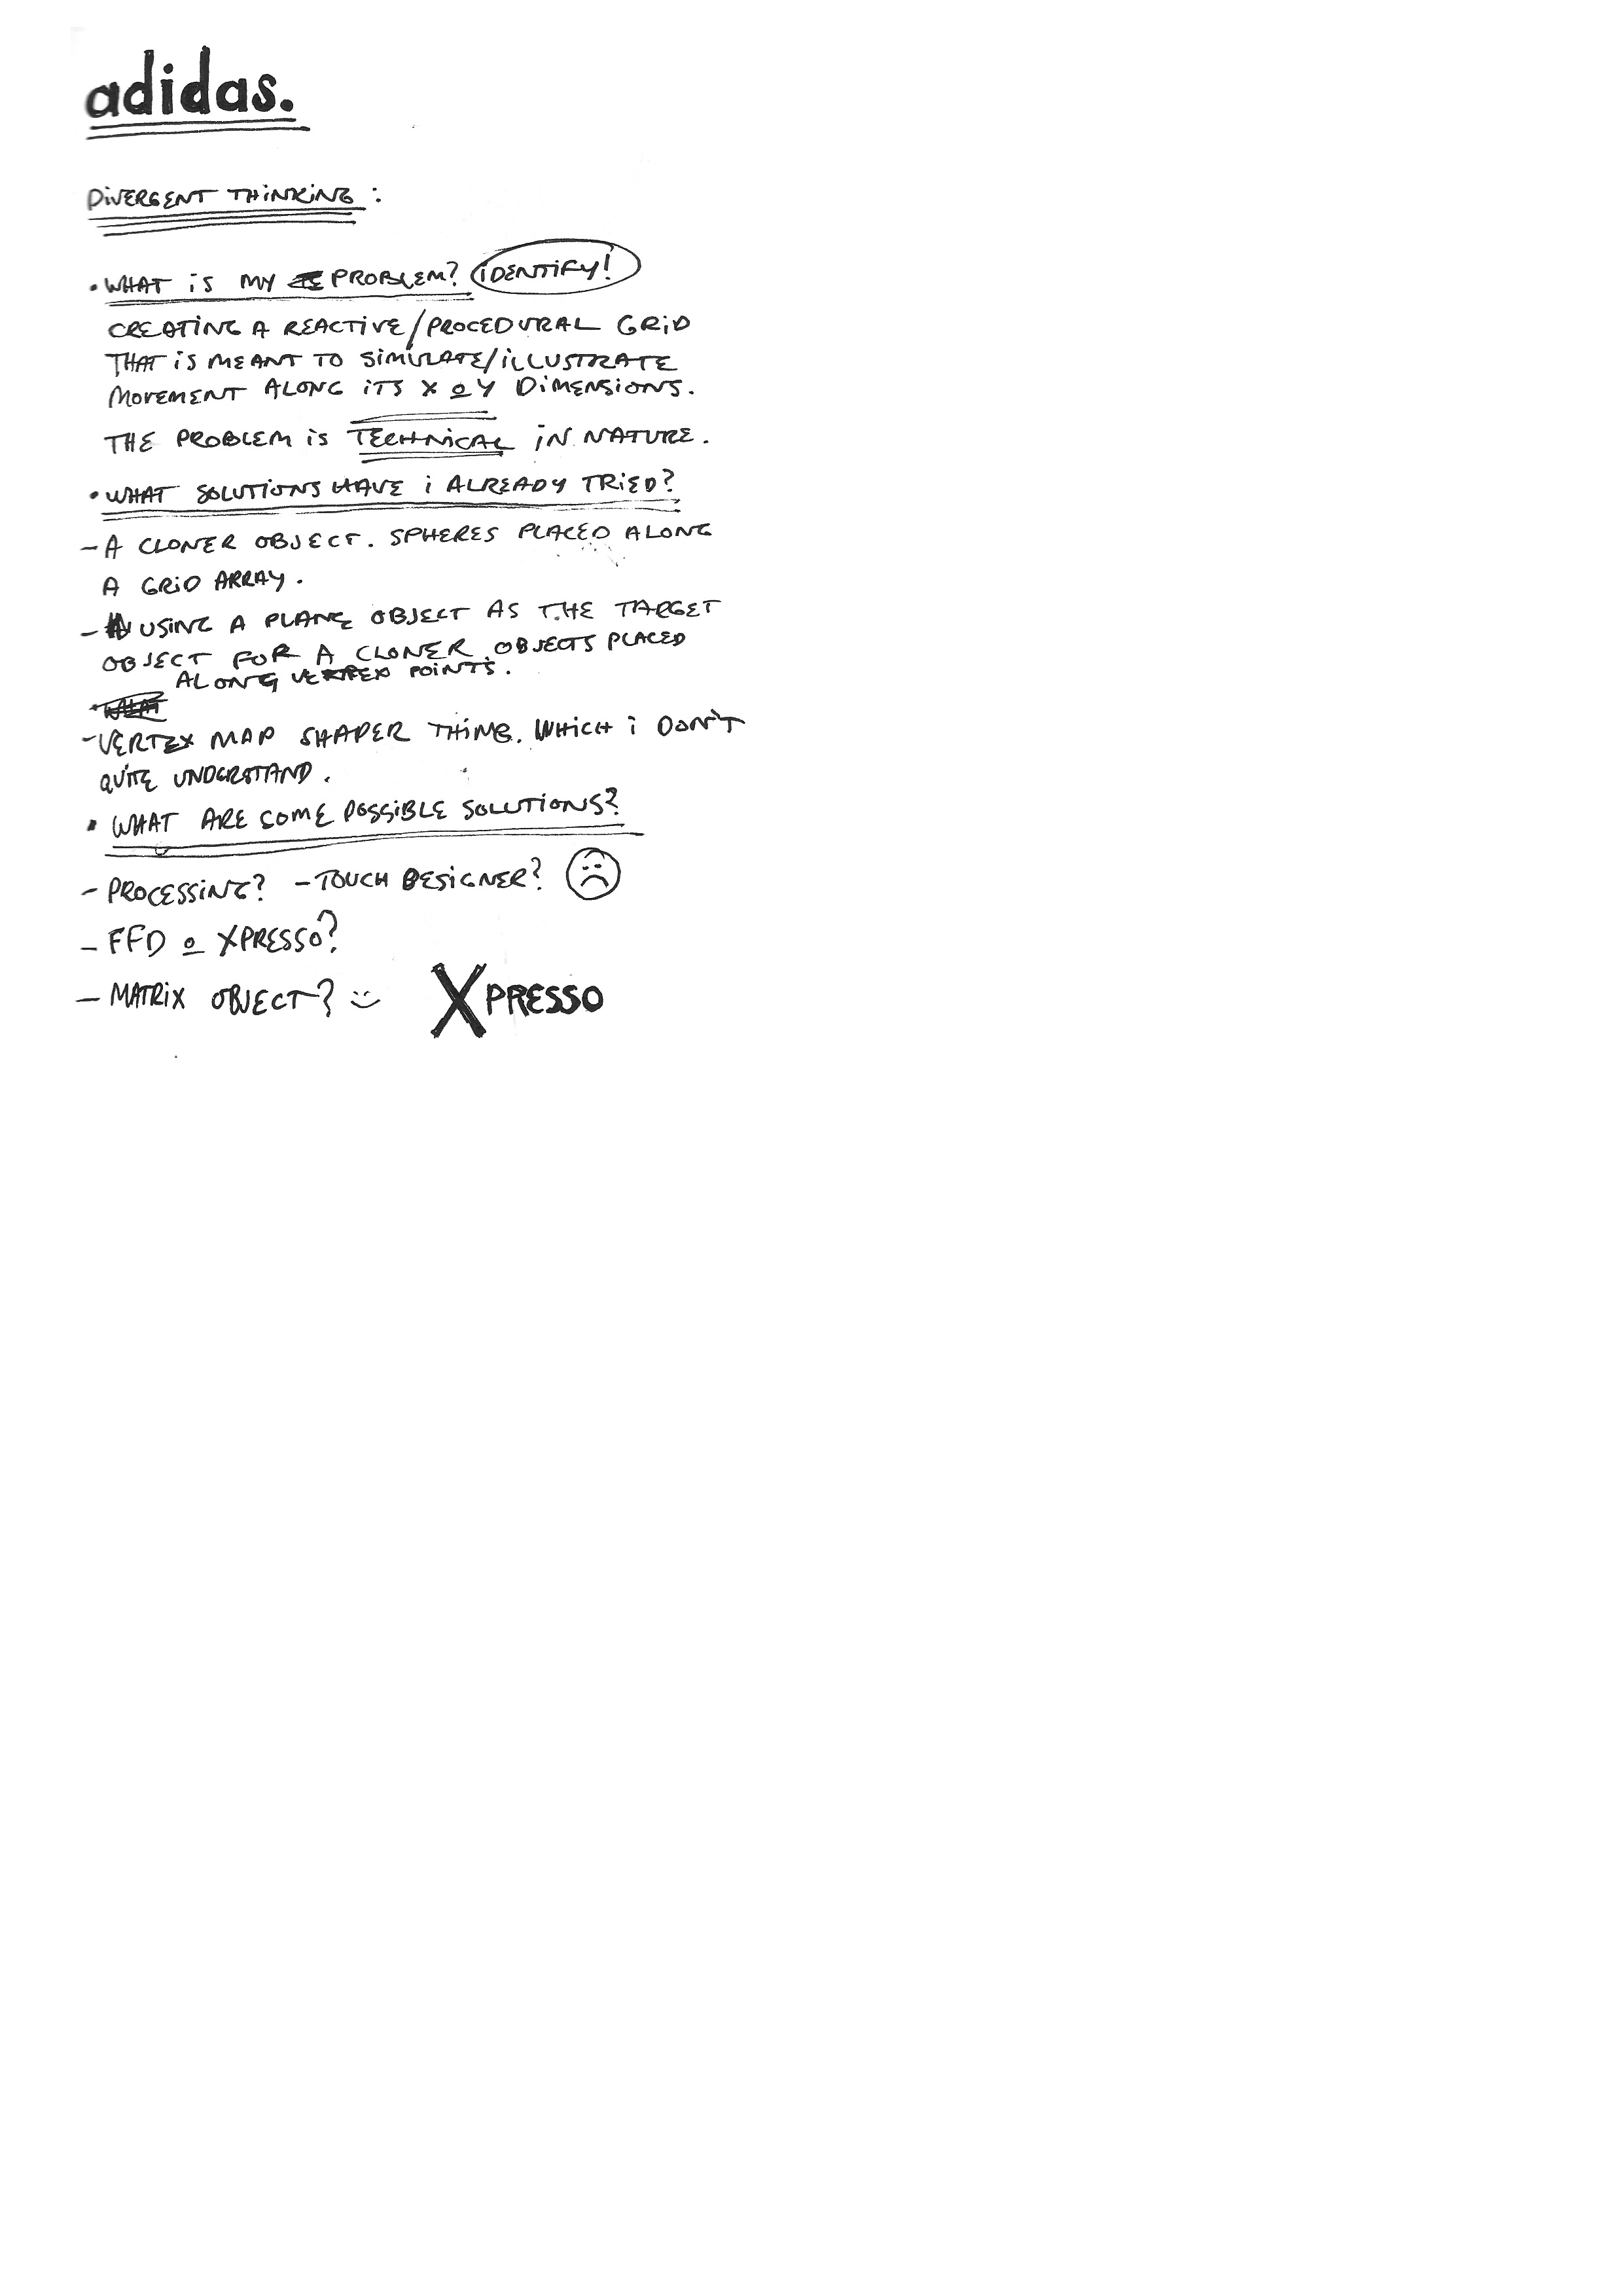 adidas.
DIVERGENT THINKING :
• WHAT IS MY PROBLEM? IDENTIFY!
CREATING A REACTIVE/PROCEDURAL GRID
THAT IS MEANT TO SIMULATE/ILLUSTRATE
MOVEMENT ALONG ITS X & Y DIMENSIONS.
THE PROBLEM IS TECHNICAL IN NATURE.
• WHAT SOLUTIONS HAVE I ALREADY TRIED?
- A CLONER OBJECT. SPHERES PLACED ALONG
A GRID ARRAY.
- USING A PLANE OBJECT AS THE TARGET
OBJECT FOR A CLONER. OBJECTS PLACED
ALONG VERTEX POINTS.
- VERTEX MAP SHADER THING. WHICH I DON'T
QUITE UNDERSTAND.
• WHAT ARE SOME POSSIBLE SOLUTIONS?
- PROCESSING? - TOUCH DESIGNER?
- FFD & XPRESSO?
- MATRIX OBJECT? XPRESSO